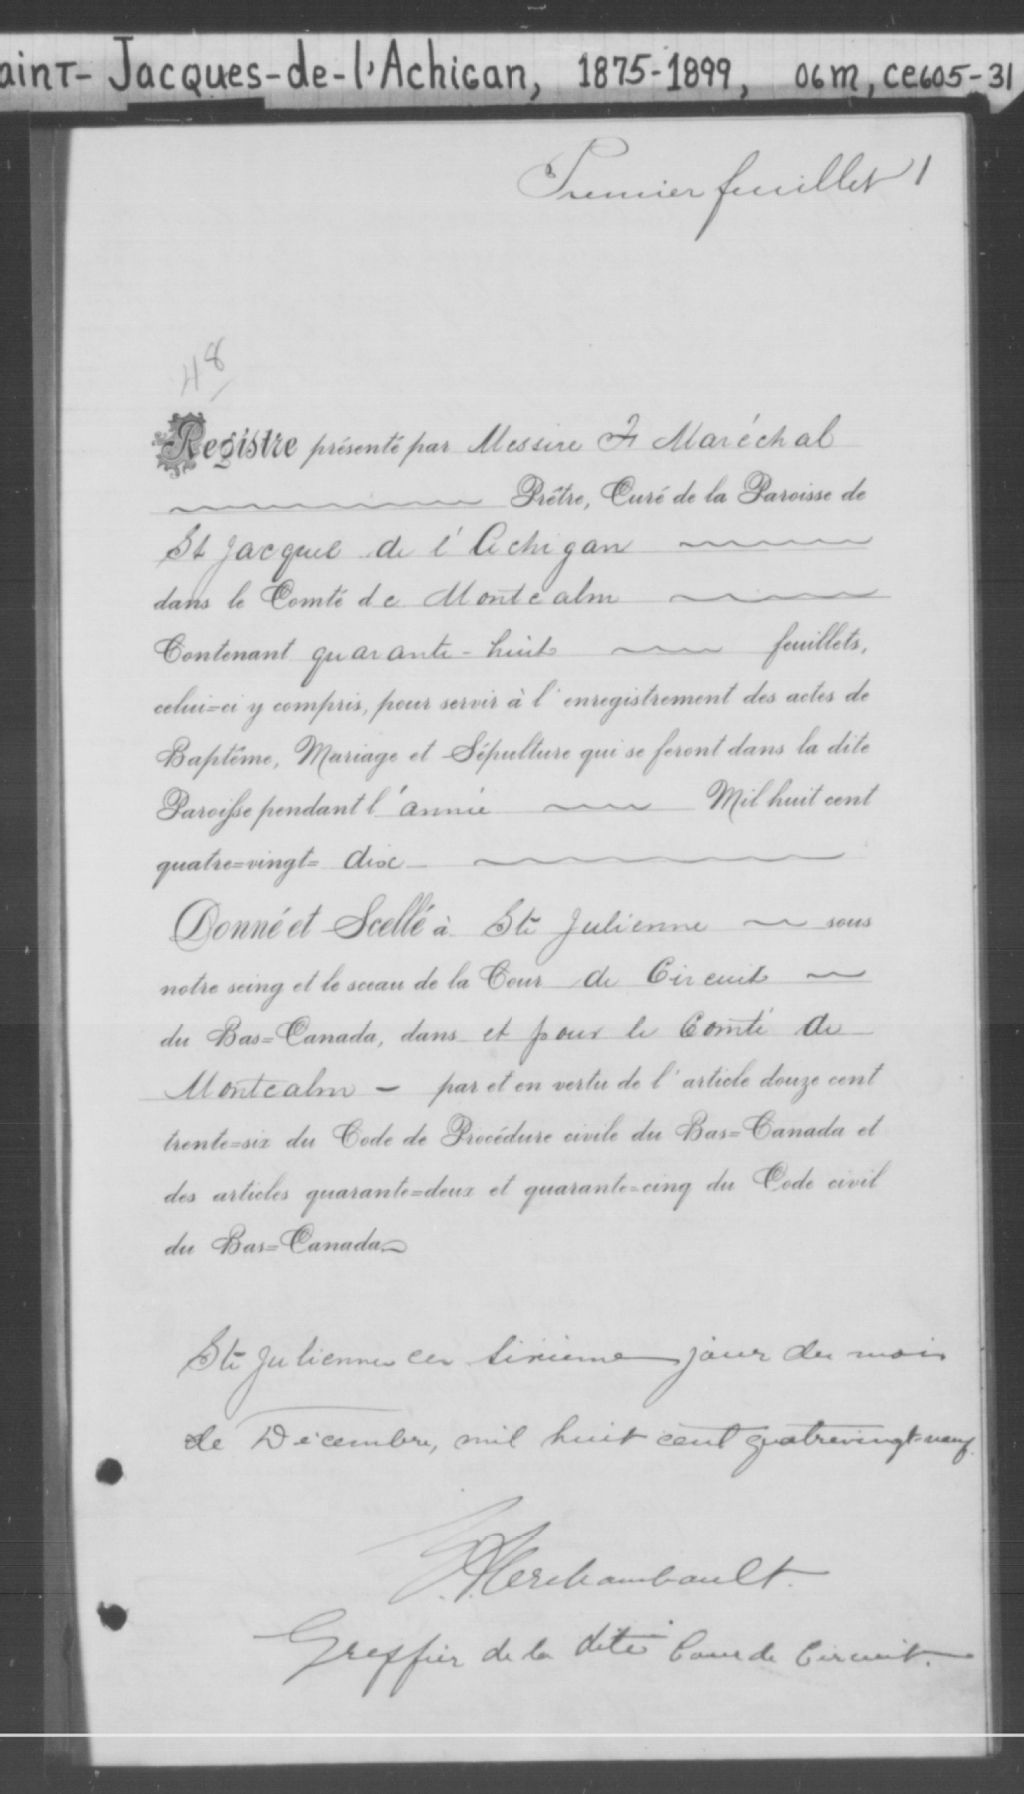 aint-Jacques-de-l'Achigan, 1875-1899, 06M, CE605-31
Premier feuillet 1
48
Registre présenté par Messire Maréchal
Prêtre, Curé de la Paroisse de
St Jacques de l'Achigan
dans le Comté de Montcalm
Contenant quarante-huit feuillets,
celui=ci y compris, pour servir à l'enregistrement des actes de
Baptême, Mariage et Sépulture qui se feront dans la dite
Paroisse pendant l'année Mil huit cent
quatre=vingt= dix
Donné et Scellé à Ste Julienne sous
notre seing et le sceau de la Cour de Circuit
du Bas=Canada, dans et pour le Comté de
Montcalm - par et en vertu de l'article douze cent
trente=six du Code de Procédure civile du Bas=Canada et
des articles quarante=deux et quarante=cinq du Code civil
du Bas=Canada
Ste Julienne ce sixième jour du mois
de Décembre, mil huit cent quatrevingt-neuf.
Archambault.
Greffier de la dite Cour de Circuit.